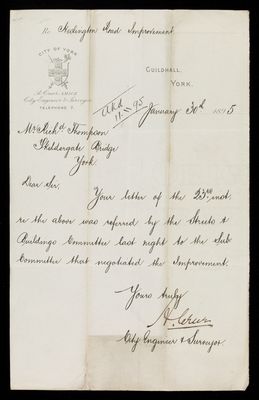 Re Heslington Road Improvement.
CITY OF YORK
A. Creer, A.M.I.C.E.
City Engineer & Surveyor
TELEPHONE
GUILDHALL,
YORK.
Akd
January 30th 1895
Mr Richd Thompson
Skeldergate Bridge
York
Dear Sir,
Your letter of the 23rd inst.
re the above was referred by the Streets &
Buildings Committee last night to the Sub
Committee that negotiated the Improvement.
Yours truly
A. Creer
City Engineer & Surveyor.